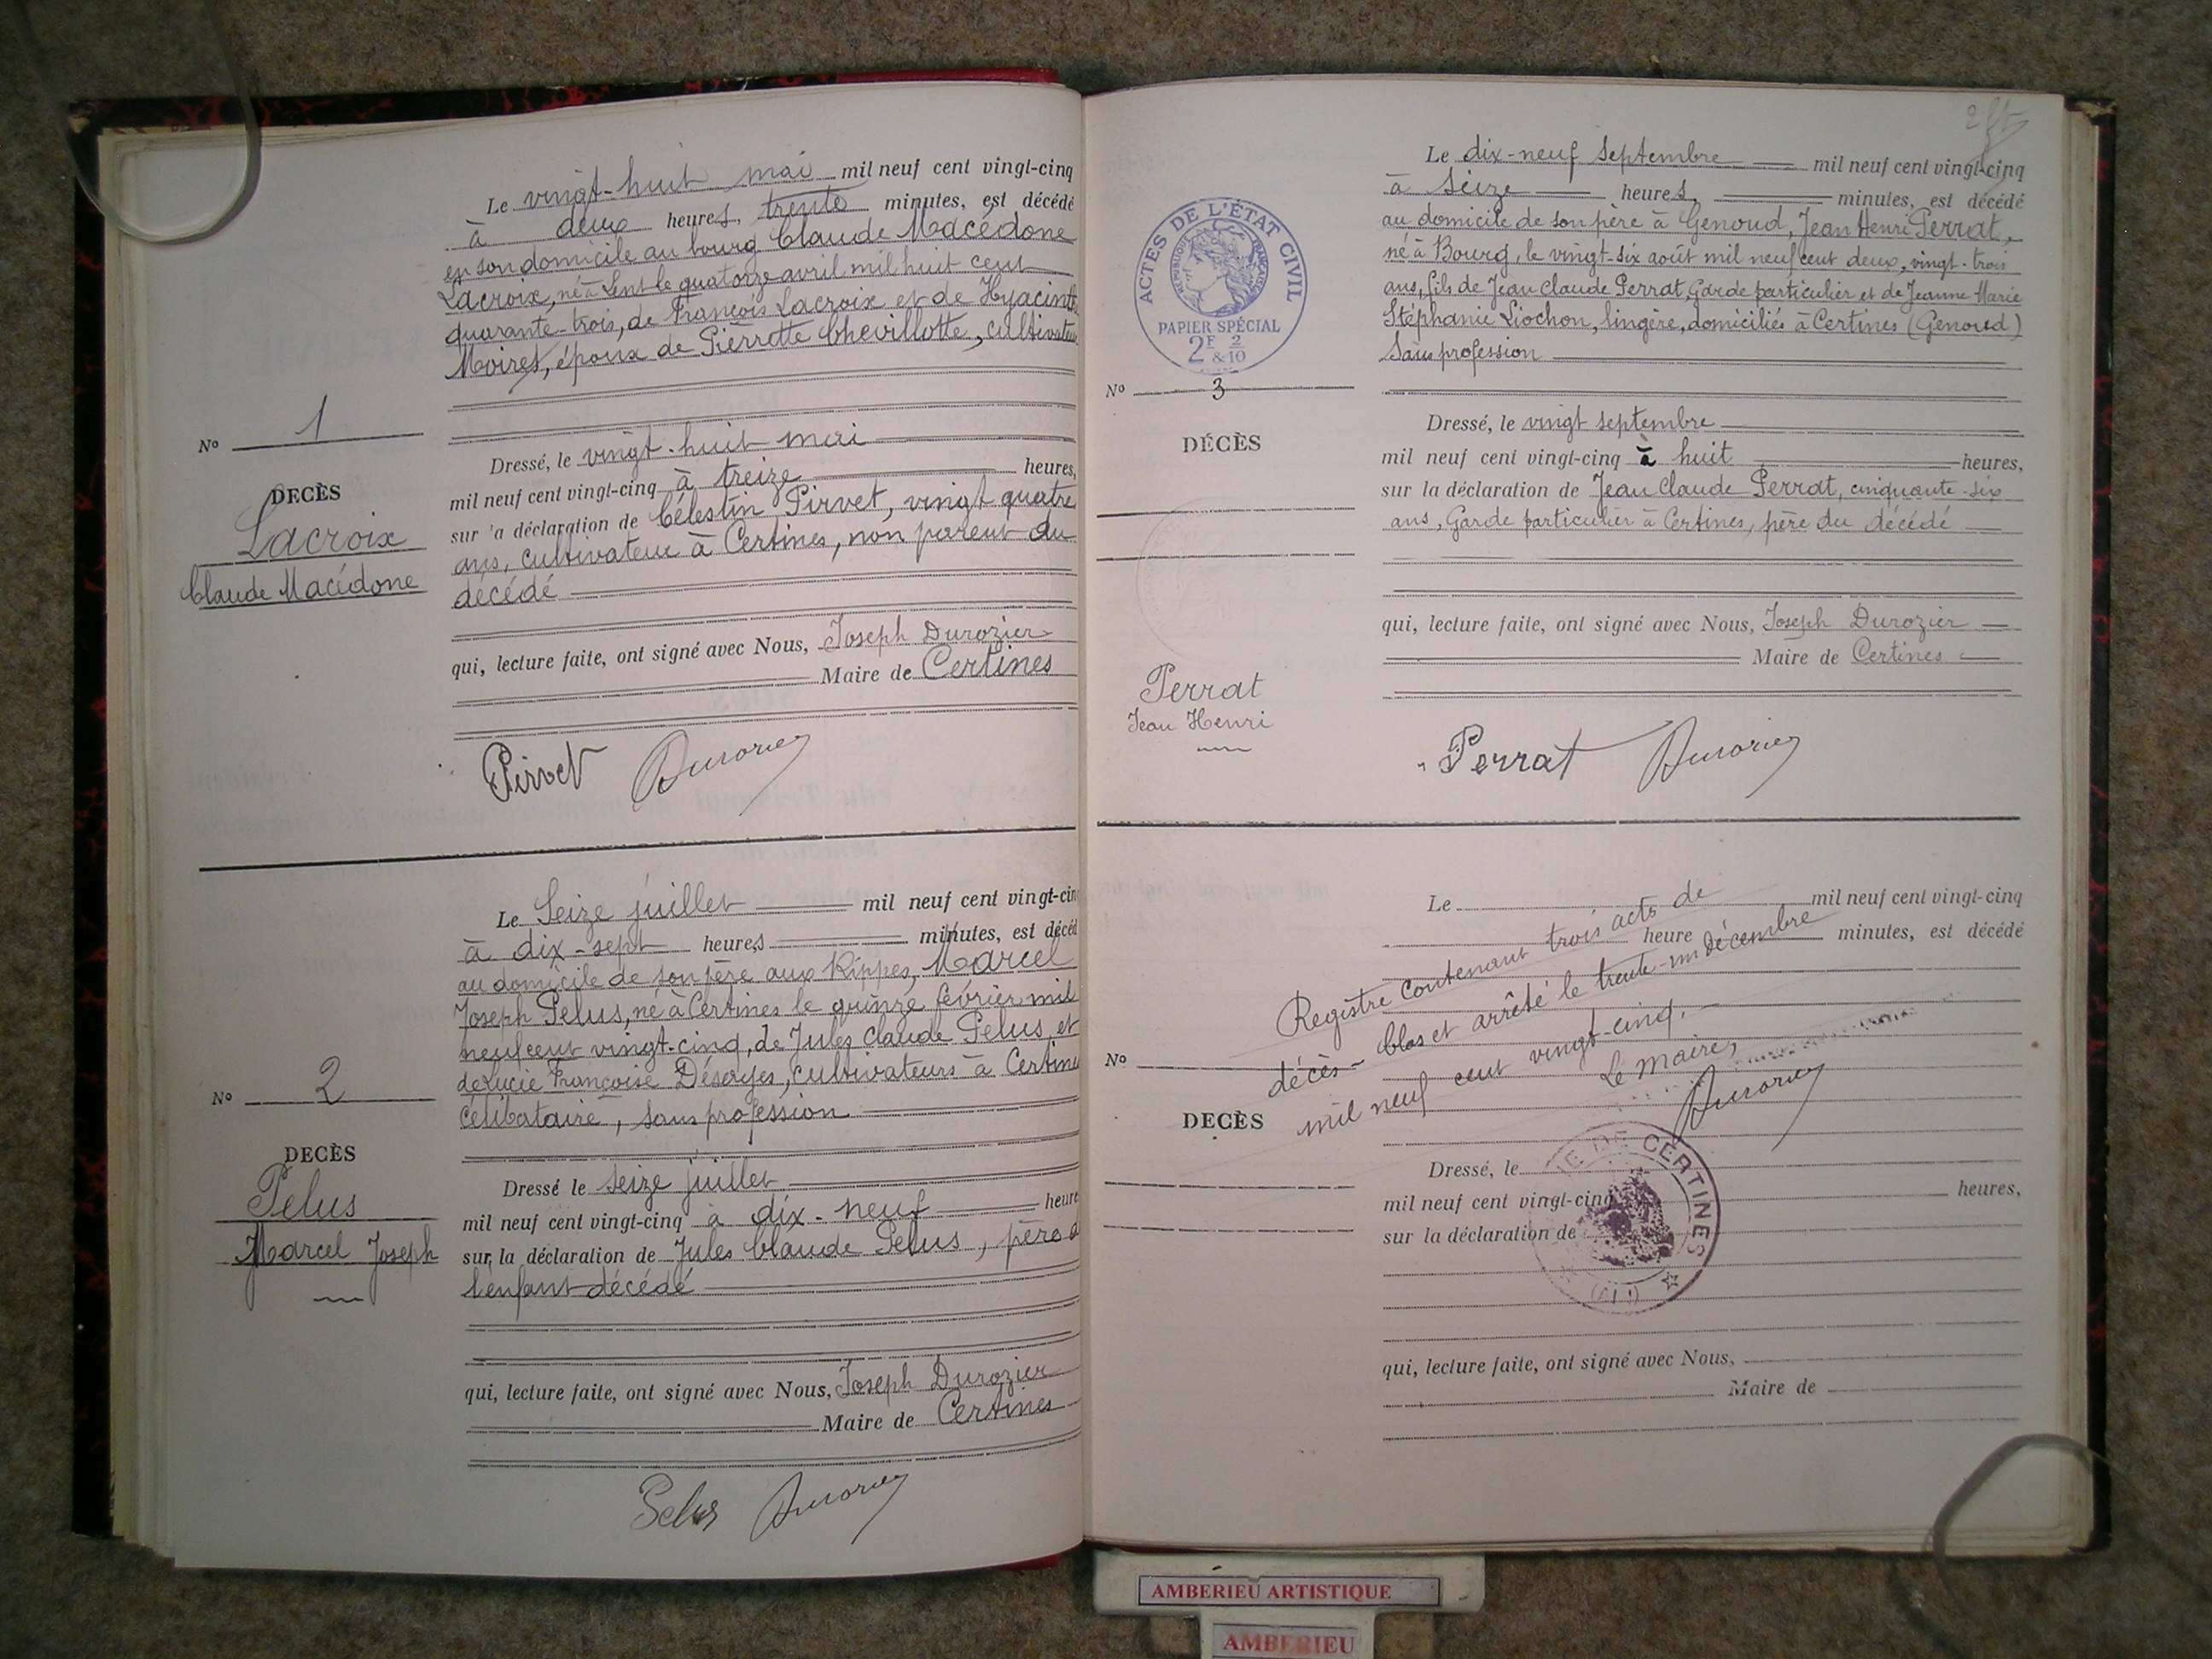 Le vingt-huit mai mil neuf cent vingt-cinq
à deux heures, trente minutes, est décédé
en son domicile au bourg Claude Macédone
Lacroix, né à Lent le quatorze avril mil huit cent
quarante-trois, de François Lacroix et de Hyacinthe
Moiret, époux de Pierrette Chevillotte, cultivateur
No 1
DECÈS
Lacroix
Claude Macédone
Dressé, le vingt-huit mai
mil neuf cent vingt-cinq à treize heures,
sur 'a déclaration de Célestin Pirvet, vingt quatre
ans, cultivateur à Certines, non parent du
décédé
qui, lecture faite, ont signé avec Nous, Joseph Durozier
Maire de Certines
Pirvet Durozier
Le Seize juillet mil neuf cent vingt-cin
à dix-sept heures minutes, est décéd
au domicile de son père aux Rippes, Marcel
Joseph Pelus, né à Certines le quinze février mil
neuf cent vingt-cinq, de Jules Claude Pelus, et
de Lucie Françoise Désayes, cultivateurs à Certines
célibataire, sans profession
No 2
DECÈS
Pelus
Marcel Joseph
Dressé le seize juillet
mil neuf cent vingt-cinq à dix-neuf heure
sur la déclaration de Jules Claude Pelus, père d
l'enfant décédé
qui, lecture faite, ont signé avec Nous, Joseph Durozier
Maire de Certines
Pelus Durozier
2
ACTES DE L'ÉTAT CIVIL
RÉPUBLIQUE FRANÇAISE
PAPIER SPÉCIAL
2F 2
&10
Le dix-neuf septembre mil neuf cent vingt-cinq
à seize heures, minutes, est décédé
au domicile de son père à Genoud, Jean Henri Perrat,
né à Bourg, le vingt-six août mil neuf cent deux, vingt-trois
ans, fils de Jean Claude Perrat, Garde particulier et de Jeanne Marie
Stéphanie Liochon, lingère, domiciliés à Certines (Genoud)
Sans profession
No 3
DÉCÈS
Perrat
Jean Henri
Dressé, le vingt septembre
mil neuf cent vingt-cinq à huit heures,
sur la déclaration de Jean Claude Perrat, cinquante-six
ans, Garde particulier à Certines, père du décédé
qui, lecture faite, ont signé avec Nous, Joseph Durozier
Maire de Certines
Perrat Durozier
Le mil neuf cent vingt-cinq
heure minutes, est décédé
Registre contenant trois acts de
décès - Clos et arrêté le trente-un décembre
mil neuf cent vingt-cinq.
Le Maire,
Durozier
No
DECÈS
Dressé, le
mil neuf cent vingt-cinq heures,
sur la déclaration de
IE DE CERTINES
(AIN)
qui, lecture faite, ont signé avec Nous,
Maire de
AMBERIEU ARTISTIQUE
AMBERIEU